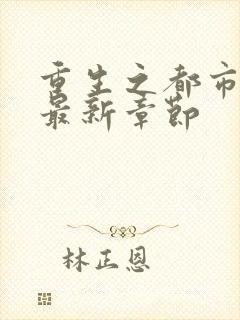 重生之都市
最新章节
林正恩